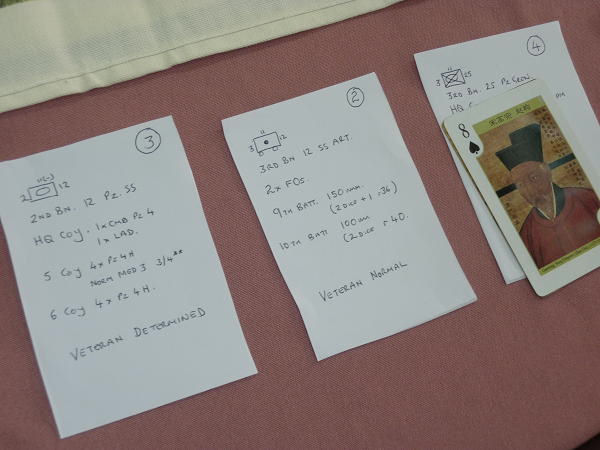 3
II(-)
2 12
2ND BN. 12 PZ. SS
HQ COY. 1x CMB PZ 4
1x LAD.
5 COY 4x PZ 4H
NORM MED 3 3/4**
6 COY 4x PZ 4H.
VETERAN DETERMINED
2
II
3 12
3RD BN 12 SS ART.
2x FOs.
9TH BATT. 150mm.
(2 DICE + 1 36)
10TH BATT 100mm
(2 DICE 40.
VETERAN NORMAL
4
II
3 25
3RD BN. 25 PZ GREN
HQ
8
宋高宗 赵构